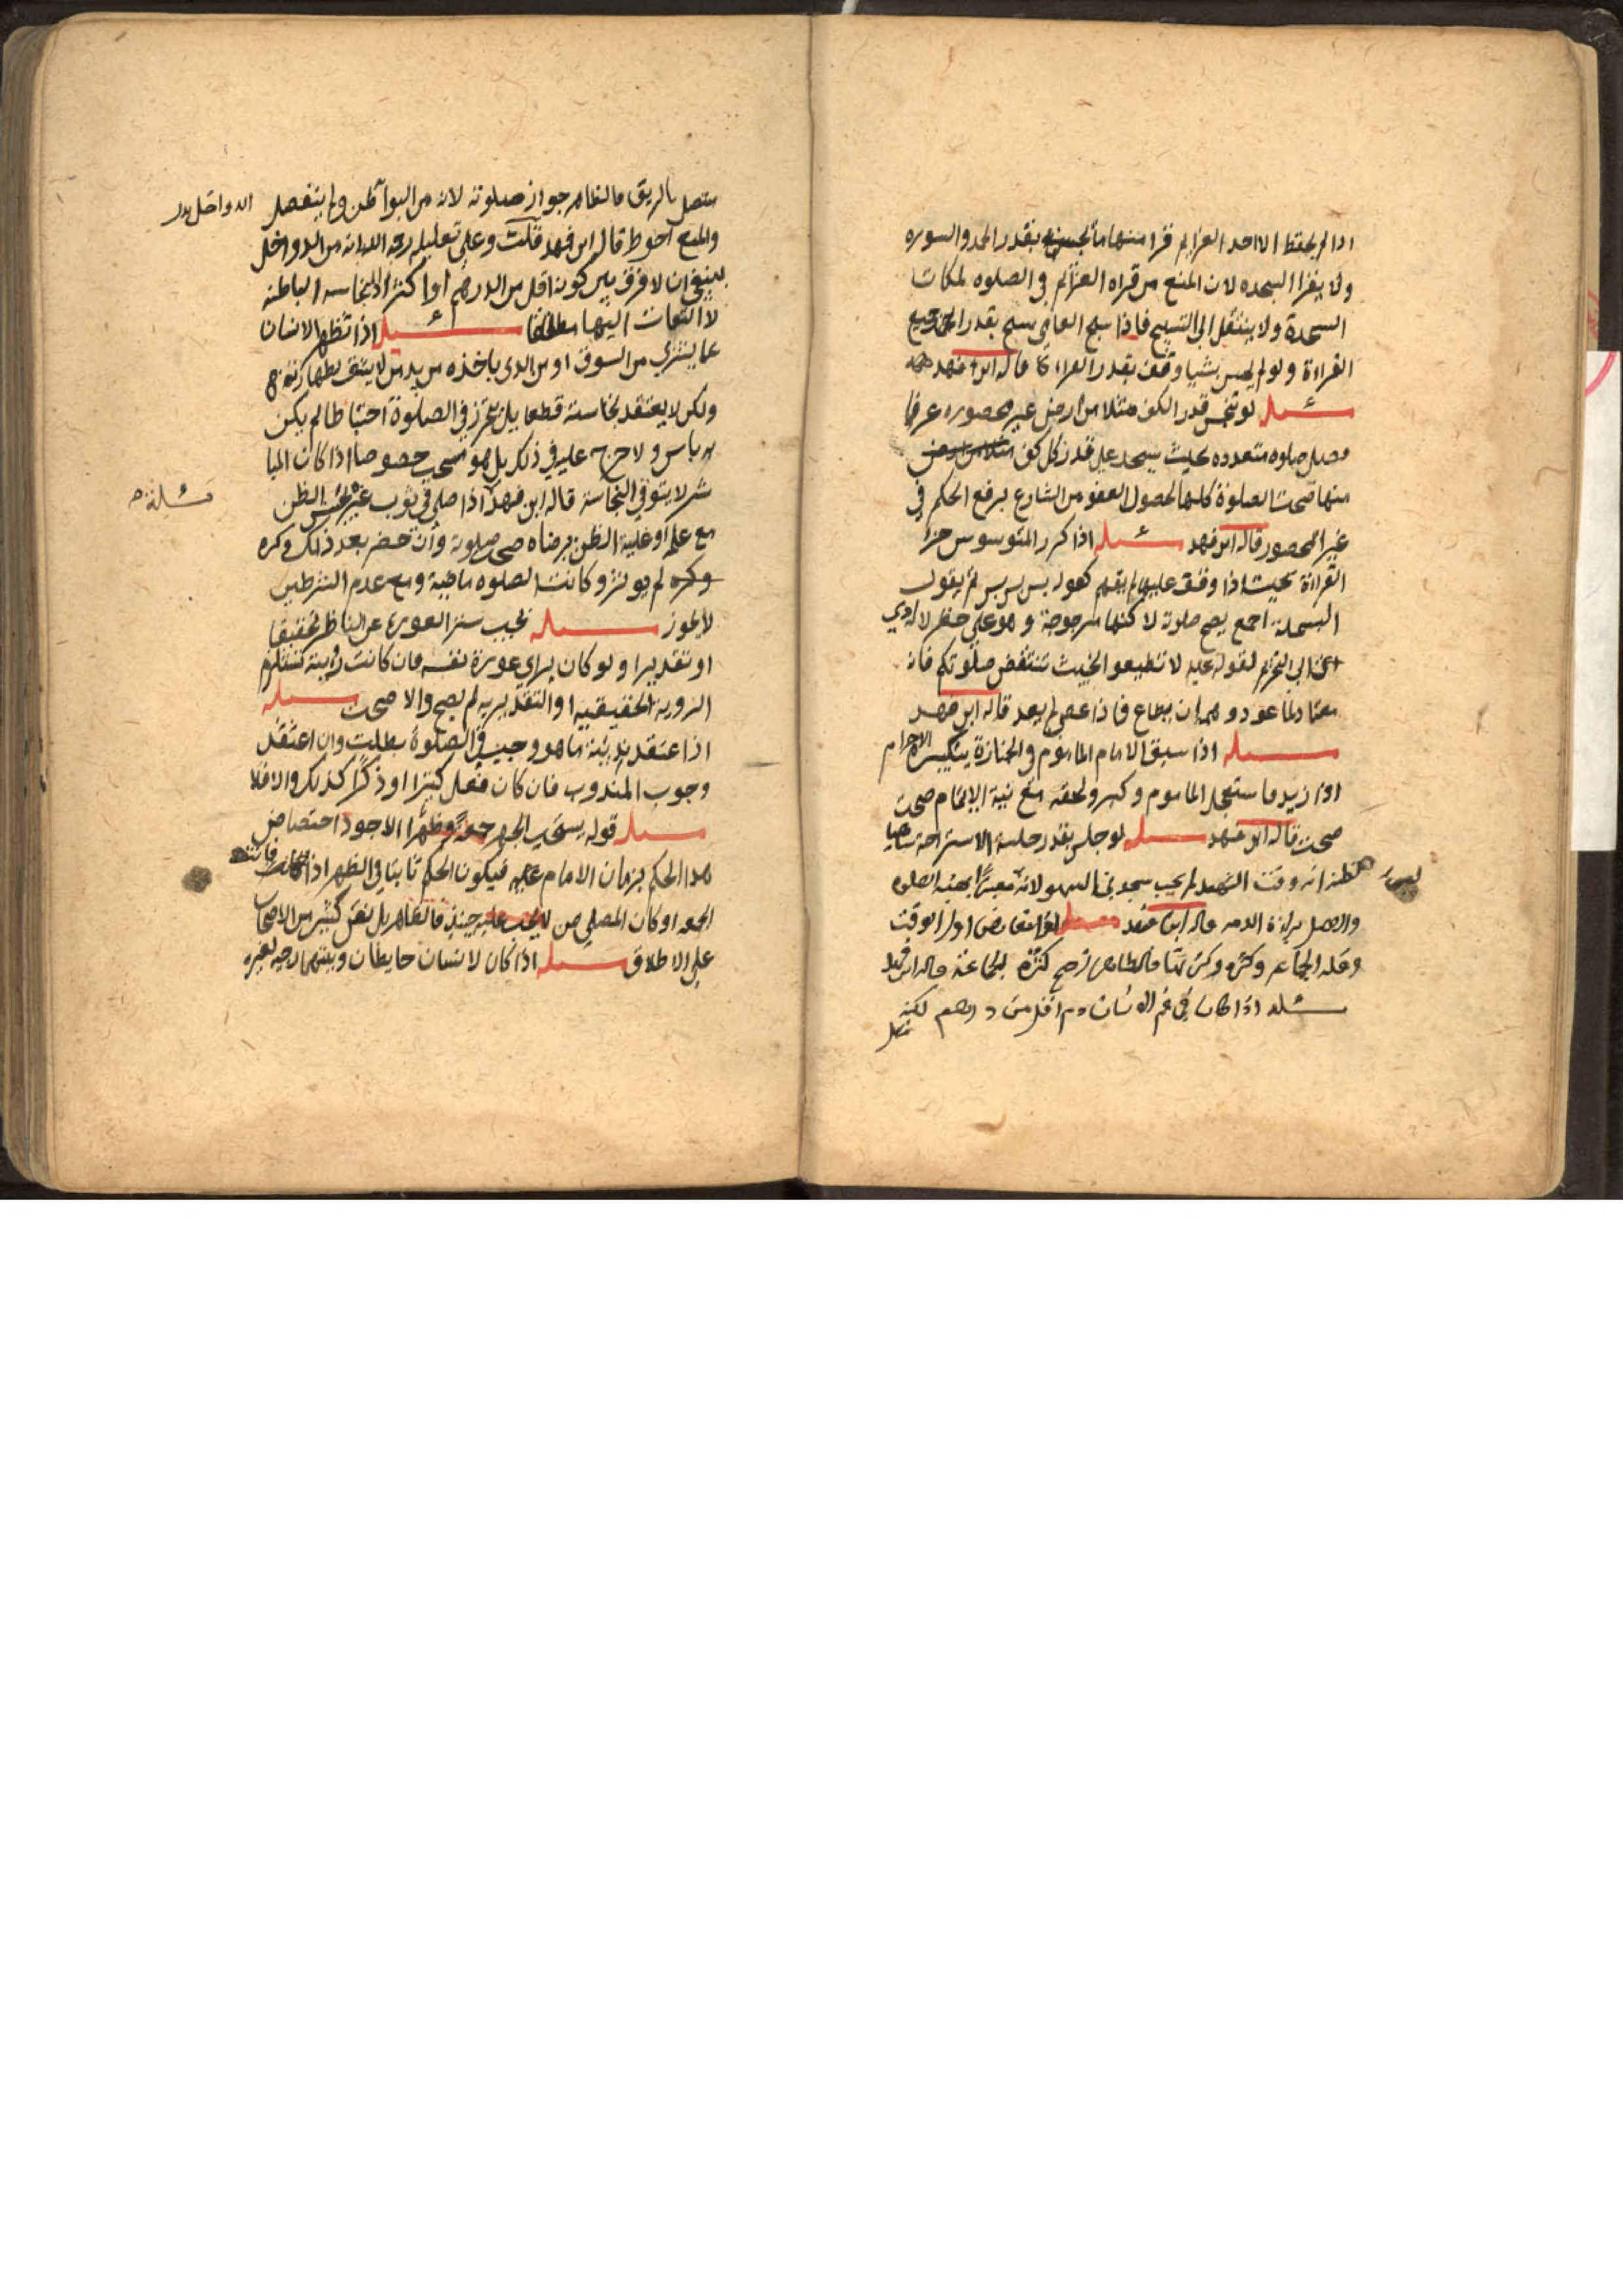 اذا لم يحفظ الا احد العزايم قرا منها ما يحسنه بقدر الحمد والسوره
ولا يقرا السجده لان المنع من قراه العزائم في الصلوه لمكان
السجدة ولا ينتقل الى التسبيح فاذا سبح العامي سبح بقدر جميع
القراءة ولو لم يحسن شيا وقف بقدر القراه كذا قاله ابن فهد
مسئله لو نجس قدر الكف مثلا من ارض غير محصوره عرفا
فصلى صلوه متعدده بحيث يسجد على قدر كل كف
منها صحت الصلوة كلها لحصول العفو من الشارع برفع الحكم في
غير المحصور قاله ابن فهد مسئله اذا كرر المتوسوس جزا
القراءة بحيث اذا وقف عليها لم يفهم كقوله بس بس بس ثم يقول
البسملة اجمع يصح صلوته لاكنها مرجوحة وهو على خطر لانه يودي
الى التحريم لقوله عليه لا تطيعو الخبيث تنتقض صلوتكم فانه
معتاد لما عود وهمه ان يطاع فاذا عصي لم يعد قاله ابن فهد
مسئله اذا سبق الامام الماموم في الجنازة بتكبيرة الاحرام
او ازيد فاستعجل الماموم وكبر ولحقه مع نية الايتمام صحت
صحت قاله ابن فهد مسئله لو جلس بقدر جلسة الاستراحة ناسيا
لظنه انه وقت التشهد لم يجب سجدتي السهو لانه ليس مغيرا لهيئة الصلوه
والاصل براءة الذمه قاله ابن فهد مسئله لو تعارض اول الوقت
وقله الجماعه وكثرتها فالظاهر ترجح كثرة الجماعة قاله ابن فهد
مسئله اذا كان في فم الانسان دم اقل من درهم لكنه
متصل
متصل بالريق فالظاهر جواز صلوته لانه من البواطن ولم ينفصل
والمنع احوط قال ابن فهد قلت وعلى تعليله رحمه الله بانه من الدواخل
ينبغي ان لا فرق بين كونه اقل من الدرهم او اكثر اذ النجاسه الباطنه
لا التفات اليها مطلقا مسئله اذا تطهر الانسان
عما يشتري من السوق او من الذي ياخذه من يد من لا يتق بطهارته
ولكن لا يعتقد نجاسته قطعا بل تحرز في الصلوة احتياطا لم يكن
به باس ولا حرج عليه في ذلك بل هو مستحب خصوصا اذا كان المبا
شر لا يتوقي النجاسة قاله ابن فهد اذا صلى في ثوب غيره بحسن الظن
مسئلة
مع علمه او غلبة الظن برضاه صح صلوته وان حضر بعد ذلك وكره
وكره لم يوثر وكانت الصلوه ماضية ومع عدم الشرطين
لا يجوز مسئله يجب ستر العورة عن الناظر تحقيقا
او تقديرا ولو كان يراي عورة نفسه فان كانت رؤيته تستلزم
الرؤية الحقيقيه او التقديريه لم يصح والا صحت مسئله
اذا اعتقد ندبية ما هو وجيب في الصلوة بطلت وان اعتقد
وجوب المندوب فان كان فعل كثيرا او ذكرا كذلك والا فلا
مسئله قوله يستحب الجهر جمعة وظهرا الاجود اختصاص
هذا الحكم بزمان الامام عليه فيكون الحكم ثابتا في الظهر اذا فاتته
الجمعه او كان المصلي ممن لا يجب عليه حينئذ فالظاهر بل نص كثير من الاصحاب
على الاطلاق مسئله اذا كان لانسان حايطان وبينهما رحبه لغيره